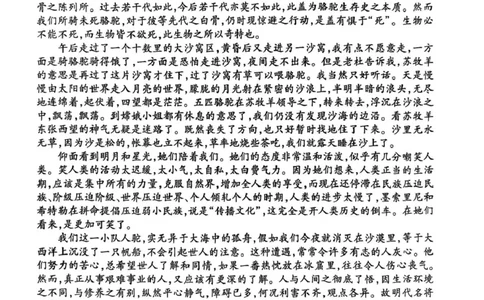 骨之陈列所。过去若干代如此,今后若干代亦莫不如此,此盖为骆驼生存史之本质。然而
我们所骑未死骆驼,对于彼等先代之白骨,仍时现惊避之行动,是盖有惧于“死”。生物必
不能不死,而生物皆不欲死,此生物之所以奇特也。
午后走过了一个十数里的大沙窝区,黄昏后又走进另一沙窝,我有点不愿意走,一方
面是骑骆驼骑得饿了,一方面是恐怕走进沙窝,夜间走不出来。但是老杜告诉我,苏牧羊
的意思是再过了这片沙窝才住下,过了沙窝有草可以喂骆驼。我当然只好听话。天是慢
慢由太阳的世界走入月亮的世界,朦胧的月光射在紧密的沙浪上,半明半暗的浪头,无尽
地连绵着,起伏着,四望都是茫茫。五匹骆驼在苏牧羊领导之下,转来转去,浮沉在沙浪之
中,飘荡,飘荡。到嫦娥小姐都有休息的意思了,我们仍没有发现沙海的边沿。看苏牧羊
东张西望的神气无疑是迷路了。既然丧失了方向,也只好暂时找地住了下来。沙里无水
无草,因为沙是松的,帐幕也立不起来,草率地烧些茶吃,我们就露天睡在沙上了。
仰面看到明月和星光,她们陪着我们。她们的态度非常温和和活泼,似乎有几分嘲笑人
类。笑人类的活动太迟缓,太小气,太自私,太白费气力。因为她们想来,人类正当的生活
期,应该是集中所有的力量,克服自然界,增加全人类的享受,而现在还停滞在民族压迫民
族、阶级压迫阶级、世界压迫世界、个人倾轧个人的时期,人类的进步太慢了,墨索里尼和
希特勒在拼命提倡压迫弱小民族,说是“传播文化”,这完全是开人类历史的倒车。在她们
看来,是更加可笑了。
我们这一小队人驼,实无异于大海中的孤舟,假如我们今夜就消灭在沙漠里,等于大
西洋上沉没了一只帆船,不会引起人世的注意。这种遭遇,常常令许多有志的人灰心。他
们努力的苦心,总希望世人了解和同情,如果一番热忱放在冰窟里,往往令人伤心丧气。
然而,真正从事艰难事业的人,又应该有更深的了解。人与人间之彻底了悟,因生活环境
之不同,与修养之有别,纵然平心静气,障碍已多,何况利害不齐,观点各异。故明代名将